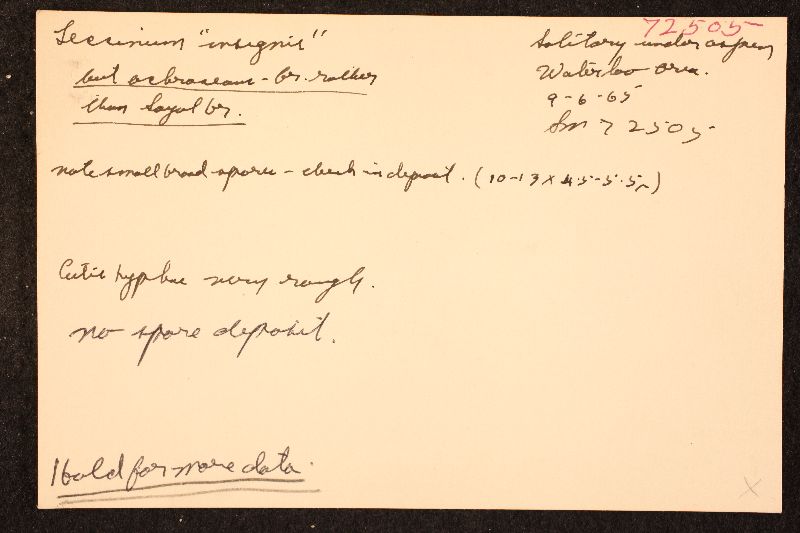 72505
Leccinum "insignis"
but ochraceous-br. rather
than Sayal br.
Solitary under aspen
Waterloo area.
9-6-65
Sm 72505
note small broad spores - check in deposit. (10-13 x 4.5-5.5µ)
Cutis hyphae very rough.
no spore deposit.
Hold for more data.
X